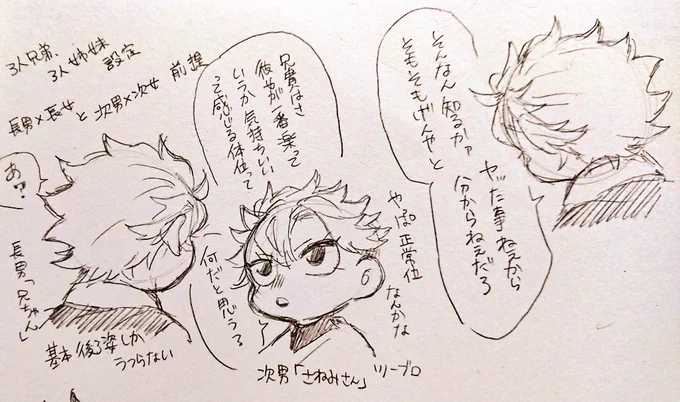 3人兄弟、
3人姉妹
設定
長男×長女 と 次男×次女 前提
そんなん知るかァ
そもそもげんやと
ヤッた事ねェから
分からねェだろ
兄貴はさ
彼女が一番楽って
いうか気持ちいい
って感じる体位って
やっぱ正常位
なんかな
何だと思うる
あ?
長男「兄ちゃん」
基本後ろ姿しか
うつらない
次男「さねみさん」ツーブロ